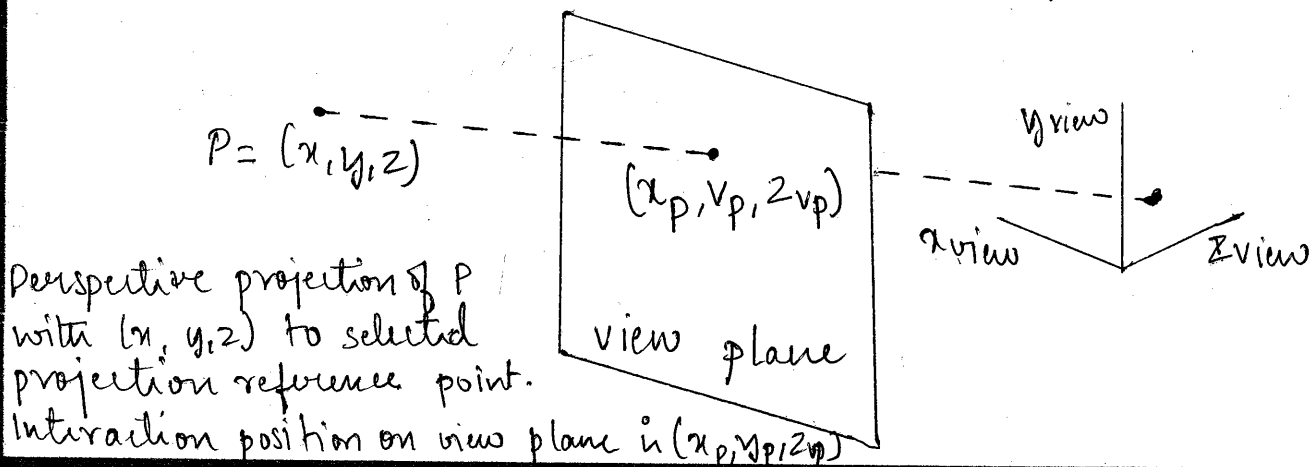 P= (x,y,z)
(xp,Vp,Zvp)
yview
xview
Zview
view plane
Perspective projection of P
with (x, y,z) to selected
projection reference point.
Interaction position on view plane is (xp,yp,Zvp)